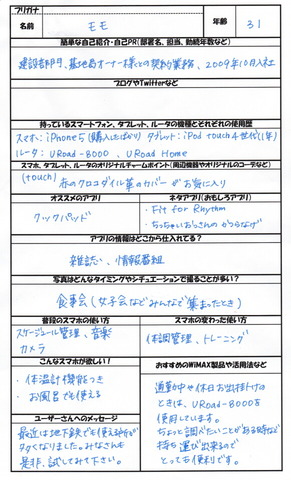 フリガナ
名前
モモ
年齢
31
簡単な自己紹介・自己PR(部署名、担当、勤続年数など)
建設部門、基地局オーナー様との契約業務、2009年10月入社
ブログやTwitterなど
持っているスマートフォン、タブレット、ルータの機種とどれぞれの使用歴
スマホ:iPhone5(購入したばかり) タブレット:iPod touch4世代(1年)
ルータ:URoad-8000、URoad Home
スマホ、タブレット、ルータのオリジナルチャームポイント(周辺機器やオリジナルのコーデなど)
(touch) 赤のクロコダイル革のカバーがお気に入り
オススメのアプリ
クックパッド
ネタアプリ(おもしろアプリ)
・Fit for Rhythm
・ちっちゃいおっさんのかつらなげ
アプリの情報はどこから仕入れてる?
雑誌、情報番組
写真はどんなタイミングやシチュエーションで撮ることが多い?
食事会(女子会などみんなで集まったとき)
普段のスマホの使い方
スケージュール管理、音楽
カメラ
スマホの変わった使い方
体調管理、トレーニング
こんなスマホが欲しい!
・体温計機能つき
・お風呂でも使える
おすすめのWiMAX製品や活用法など
通勤中や休日お出掛けの
ときは、URoad-8000を
使用しています。
ちょっと調べたいことがある時など
持ち運び出来るので
とっても便利です。
ユーザーさんへのメッセージ
最近は地下鉄でも使える所が
多くなりました。みなさんも
是非、試してみて下さい。